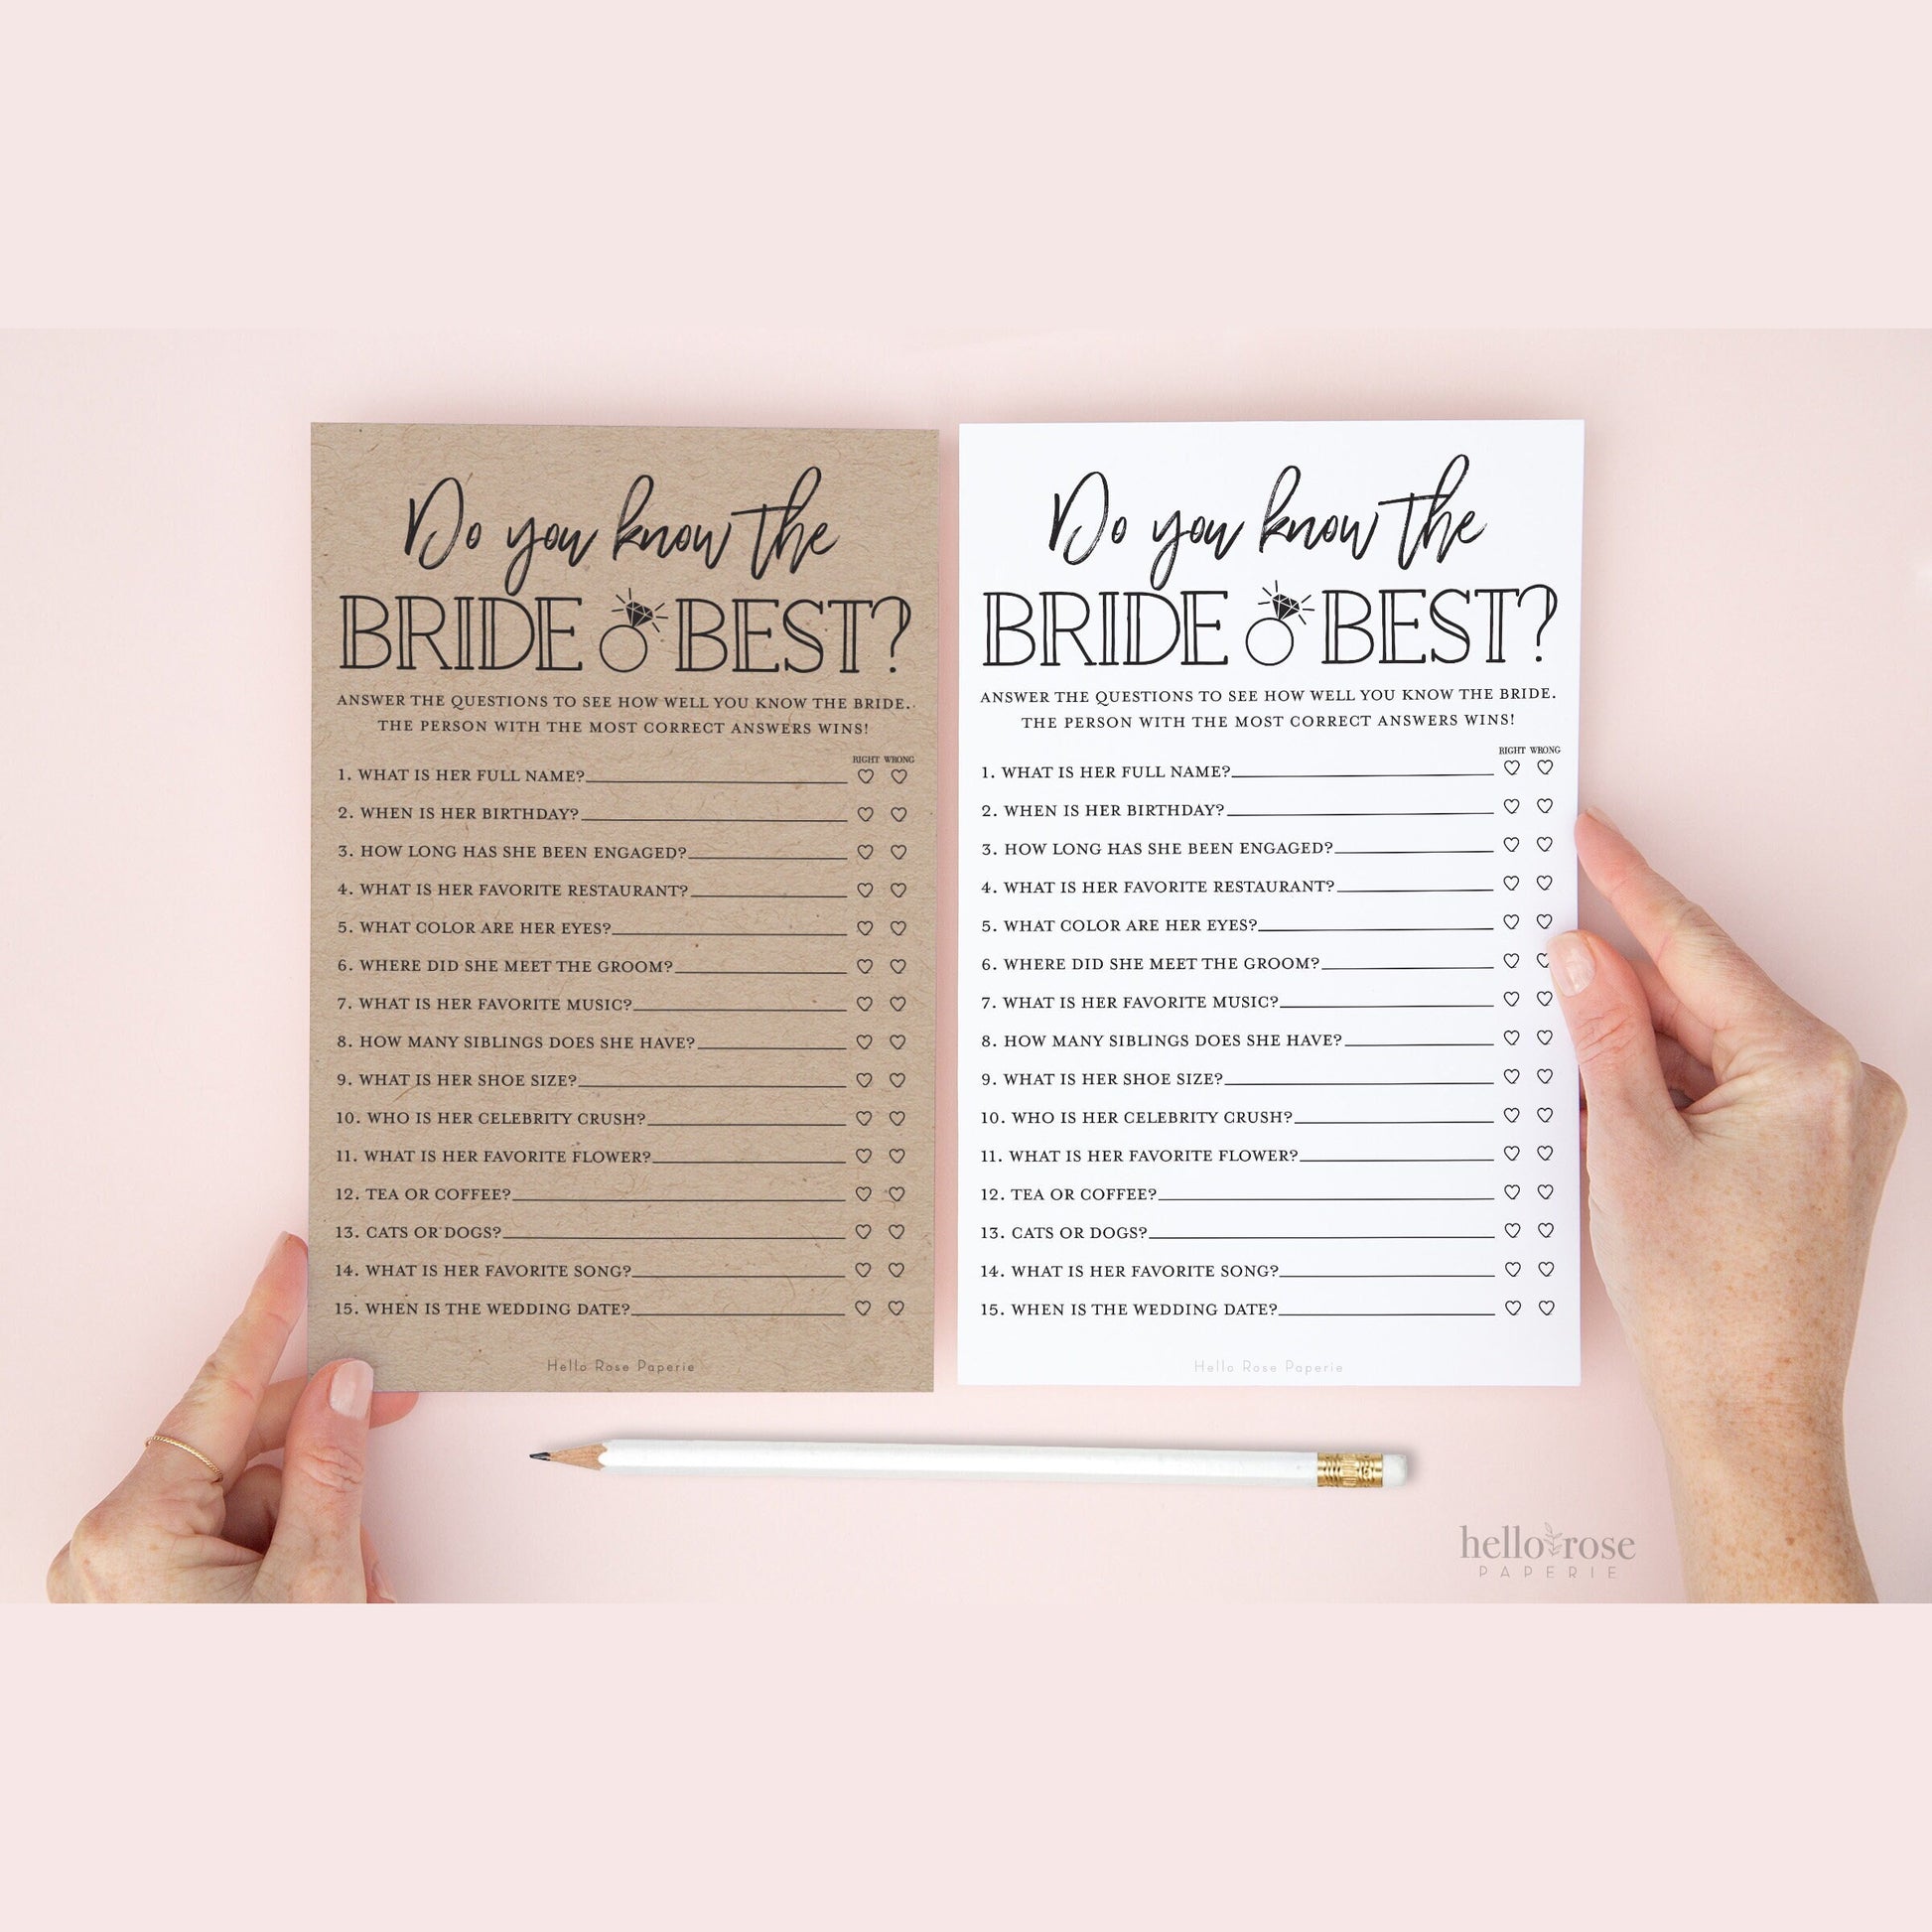 Do you know the
BRIDE BEST?
ANSWER THE QUESTIONS TO SEE HOW WELL YOU KNOW THE BRIDE.
THE PERSON WITH THE MOST CORRECT ANSWERS WINS!
RIGHT WRONG
1. WHAT IS HER FULL NAME?
2. WHEN IS HER BIRTHDAY?
3. HOW LONG HAS SHE BEEN ENGAGED?
4. WHAT IS HER FAVORITE RESTAURANT?
5. WHAT COLOR ARE HER EYES?
6. WHERE DID SHE MEET THE GROOM?
7. WHAT IS HER FAVORITE MUSIC?
8. HOW MANY SIBLINGS DOES SHE HAVE?
9. WHAT IS HER SHOE SIZE?
10. WHO IS HER CELEBRITY CRUSH?
11. WHAT IS HER FAVORITE FLOWER?
12. TEA OR COFFEE?
13. CATS OR DOGS?
14. WHAT IS HER FAVORITE SONG?
15. WHEN IS THE WEDDING DATE?
Hello Rose Paperie
Do you know the
BRIDE BEST?
ANSWER THE QUESTIONS TO SEE HOW WELL YOU KNOW THE BRIDE.
THE PERSON WITH THE MOST CORRECT ANSWERS WINS!
RIGHT WRONG
1. WHAT IS HER FULL NAME?
2. WHEN IS HER BIRTHDAY?
3. HOW LONG HAS SHE BEEN ENGAGED?
4. WHAT IS HER FAVORITE RESTAURANT?
5. WHAT COLOR ARE HER EYES?
6. WHERE DID SHE MEET THE GROOM?
7. WHAT IS HER FAVORITE MUSIC?
8. HOW MANY SIBLINGS DOES SHE HAVE?
9. WHAT IS HER SHOE SIZE?
10. WHO IS HER CELEBRITY CRUSH?
11. WHAT IS HER FAVORITE FLOWER?
12. TEA OR COFFEE?
13. CATS OR DOGS?
14. WHAT IS HER FAVORITE SONG?
15. WHEN IS THE WEDDING DATE?
Hello Rose Paperie
hello rose
PAPERIE